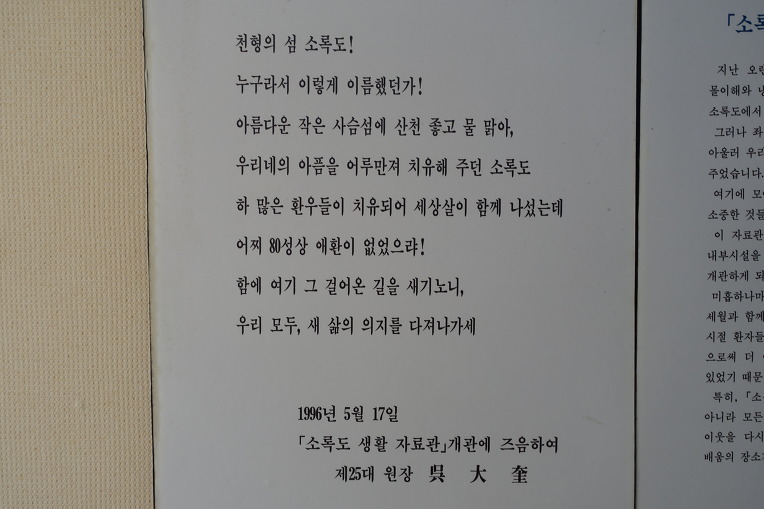 천형의 섬 소록도!
누구라서 이렇게 이름했던가!
아름다운 작은 사슴섬에 산천 좋고 물 맑아,
우리네의 아픔을 어루만져 치유해 주던 소록도
하 많은 환우들이 치유되어 세상살이 함께 나섰는데
어찌 80성상 애환이 없었으랴!
함에 여기 그 걸어온 길을 새기노니,
우리 모두, 새 삶의 의지를 다져나가세
1996년 5월 17일
「소록도 생활 자료관」개관에 즈음하여
제25대 원장 吳 大 奎
「소록
지난 오랜
물이해와
소록도에서
그러나
아울러 우리
주었습니다.
여기에
소중한 것들
이 자료관
내부시설을
개관하게 되
미흡하나마
세월과 함께
시절 환자들
으로써 더
있었기 때문
특히, 「소
아니라 모든
이웃을 다시
배움의 장소